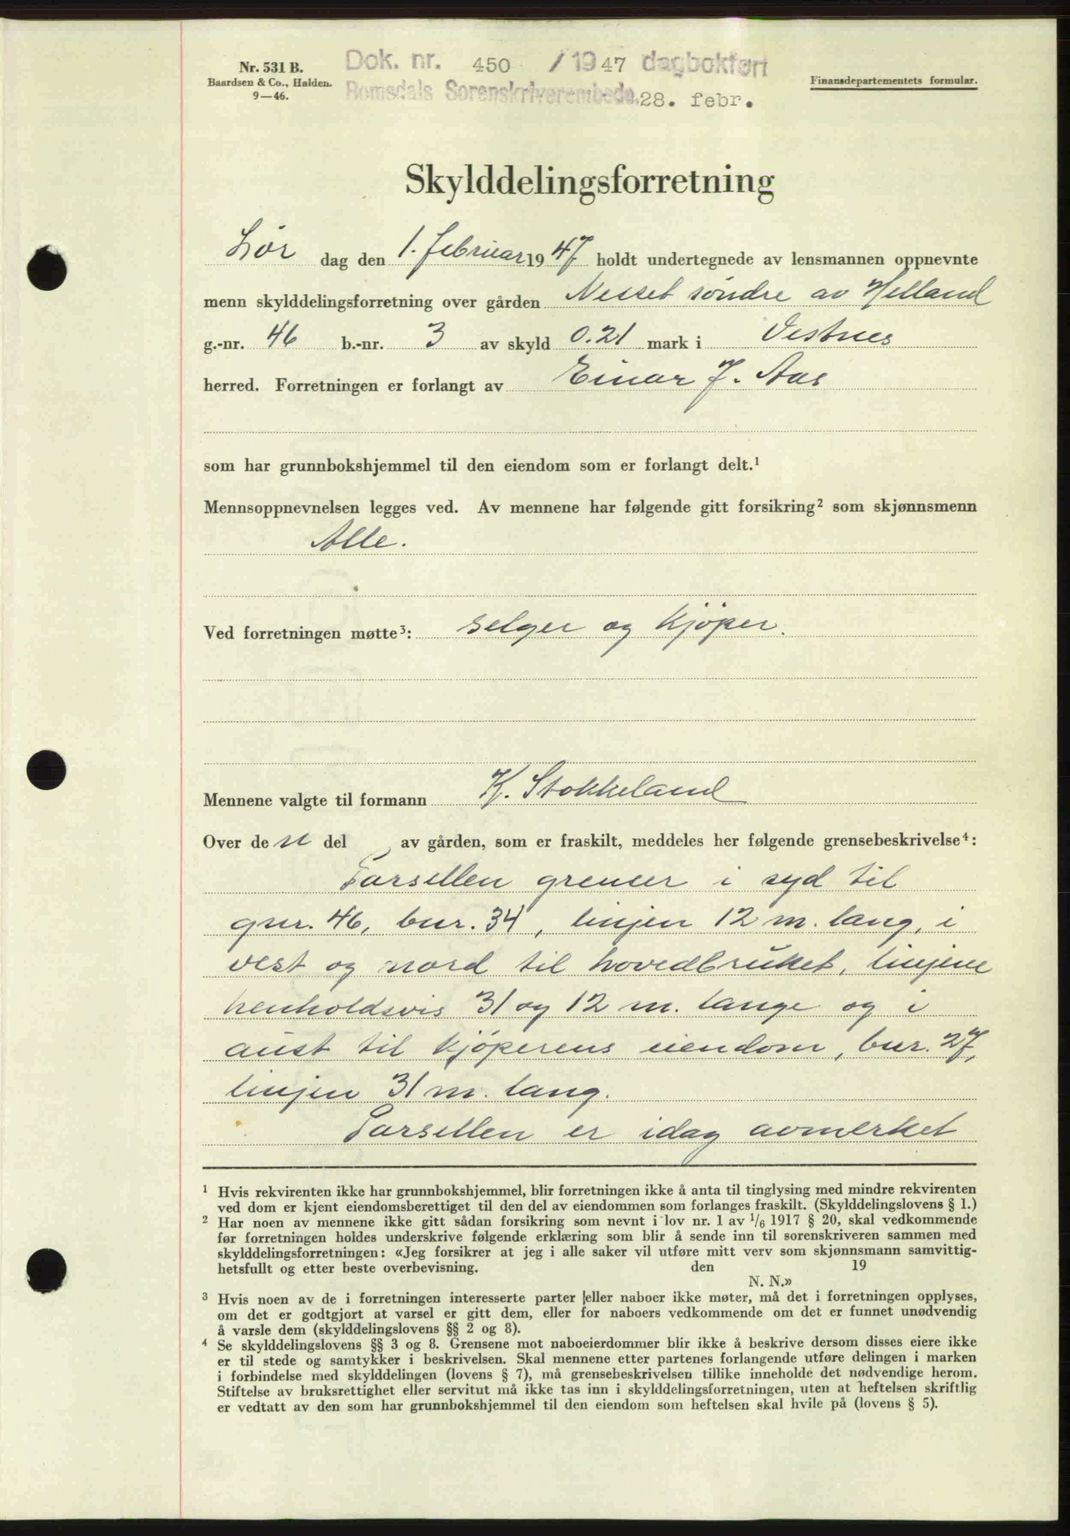 Nr. 531 B.
Baardsen & Co., Halden.
9—46.
Dok. nr. 450 / 1947 dagbokført
Romsdals Sorenskriverembede 28. febr.
Finansdepartementets formular.
Skylddelingsforretning
Lør dag den 1. februar 1947 holdt undertegnede av lensmannen oppnevnte
menn skylddelingsforretning over gården Nesset søndre av Helland
g.-nr. 46 b.-nr. 3 av skyld 0.21 mark i Vestnes
herred. Forretningen er forlangt av Einar J. Aas
som har grunnbokshjemmel til den eiendom som er forlangt delt.¹
Mennsoppnevnelsen legges ved. Av mennene har følgende gitt forsikring² som skjønnsmenn
Alle.
Ved forretningen møtte³: selger og kjøper.
Mennene valgte til formann K. Stokkeland
Over den del av gården, som er fraskilt, meddeles her følgende grensebeskrivelse⁴:
Parsellen grenser i syd til
gnr. 46, bnr. 34, linjen 12 m. lang, i
vest og nord til hovedbruket, linjene
henholdsvis 31 og 12 m. lange og i
aust til kjøperens eiendom, bnr. 27,
linjen 31 m. lang.
Parsellen er idag avmerket
¹ Hvis rekvirenten ikke har grunnbokshjemmel, blir forretningen ikke å anta til tinglysing med mindre rekvirenten
ved dom er kjent eiendomsberettiget til den del av eiendommen som forlanges fraskilt. (Skylddelingslovens § 1.)
² Har noen av mennene ikke gitt sådan forsikring som nevnt i lov nr. 1 av 1/6 1917 § 20, skal vedkommende
før forretningen holdes underskrive følgende erklæring som blir å sende inn til sorenskriveren sammen med
skylddelingsforretningen: «Jeg forsikrer at jeg i alle saker vil utføre mitt verv som skjønnsmann samvittig-
hetsfullt og etter beste overbevisning. den 19
N. N.»
³ Hvis noen av de i forretningen interesserte parter eller naboer ikke møter, må det i forretningen opplyses,
om det er godtgjort at varsel er gitt dem, eller for naboers vedkommende om det er funnet unødvendig
å varsle dem (skylddelingslovens §§ 2 og 8).
⁴ Se skylddelingslovens §§ 3 og 8. Grensene mot naboeierdommer blir ikke å beskrive dersom disses eiere ikke
er til stede og samtykker i beskrivelsen. Skal mennene etter partenes forlangende utføre delingen i marken
i forbindelse med skylddelingen (lovens § 7), må grensebeskrivelsen tillike inneholde det nødvendige herom.
Stiftelse av bruksrettighet eller servitut må ikke tas inn i skylddelingsforretningen, uten at heftelsen skriftlig
er vedtatt av den som har grunnbokshjemmel til den eiendom som heftelsen skal hvile på (lovens § 5).